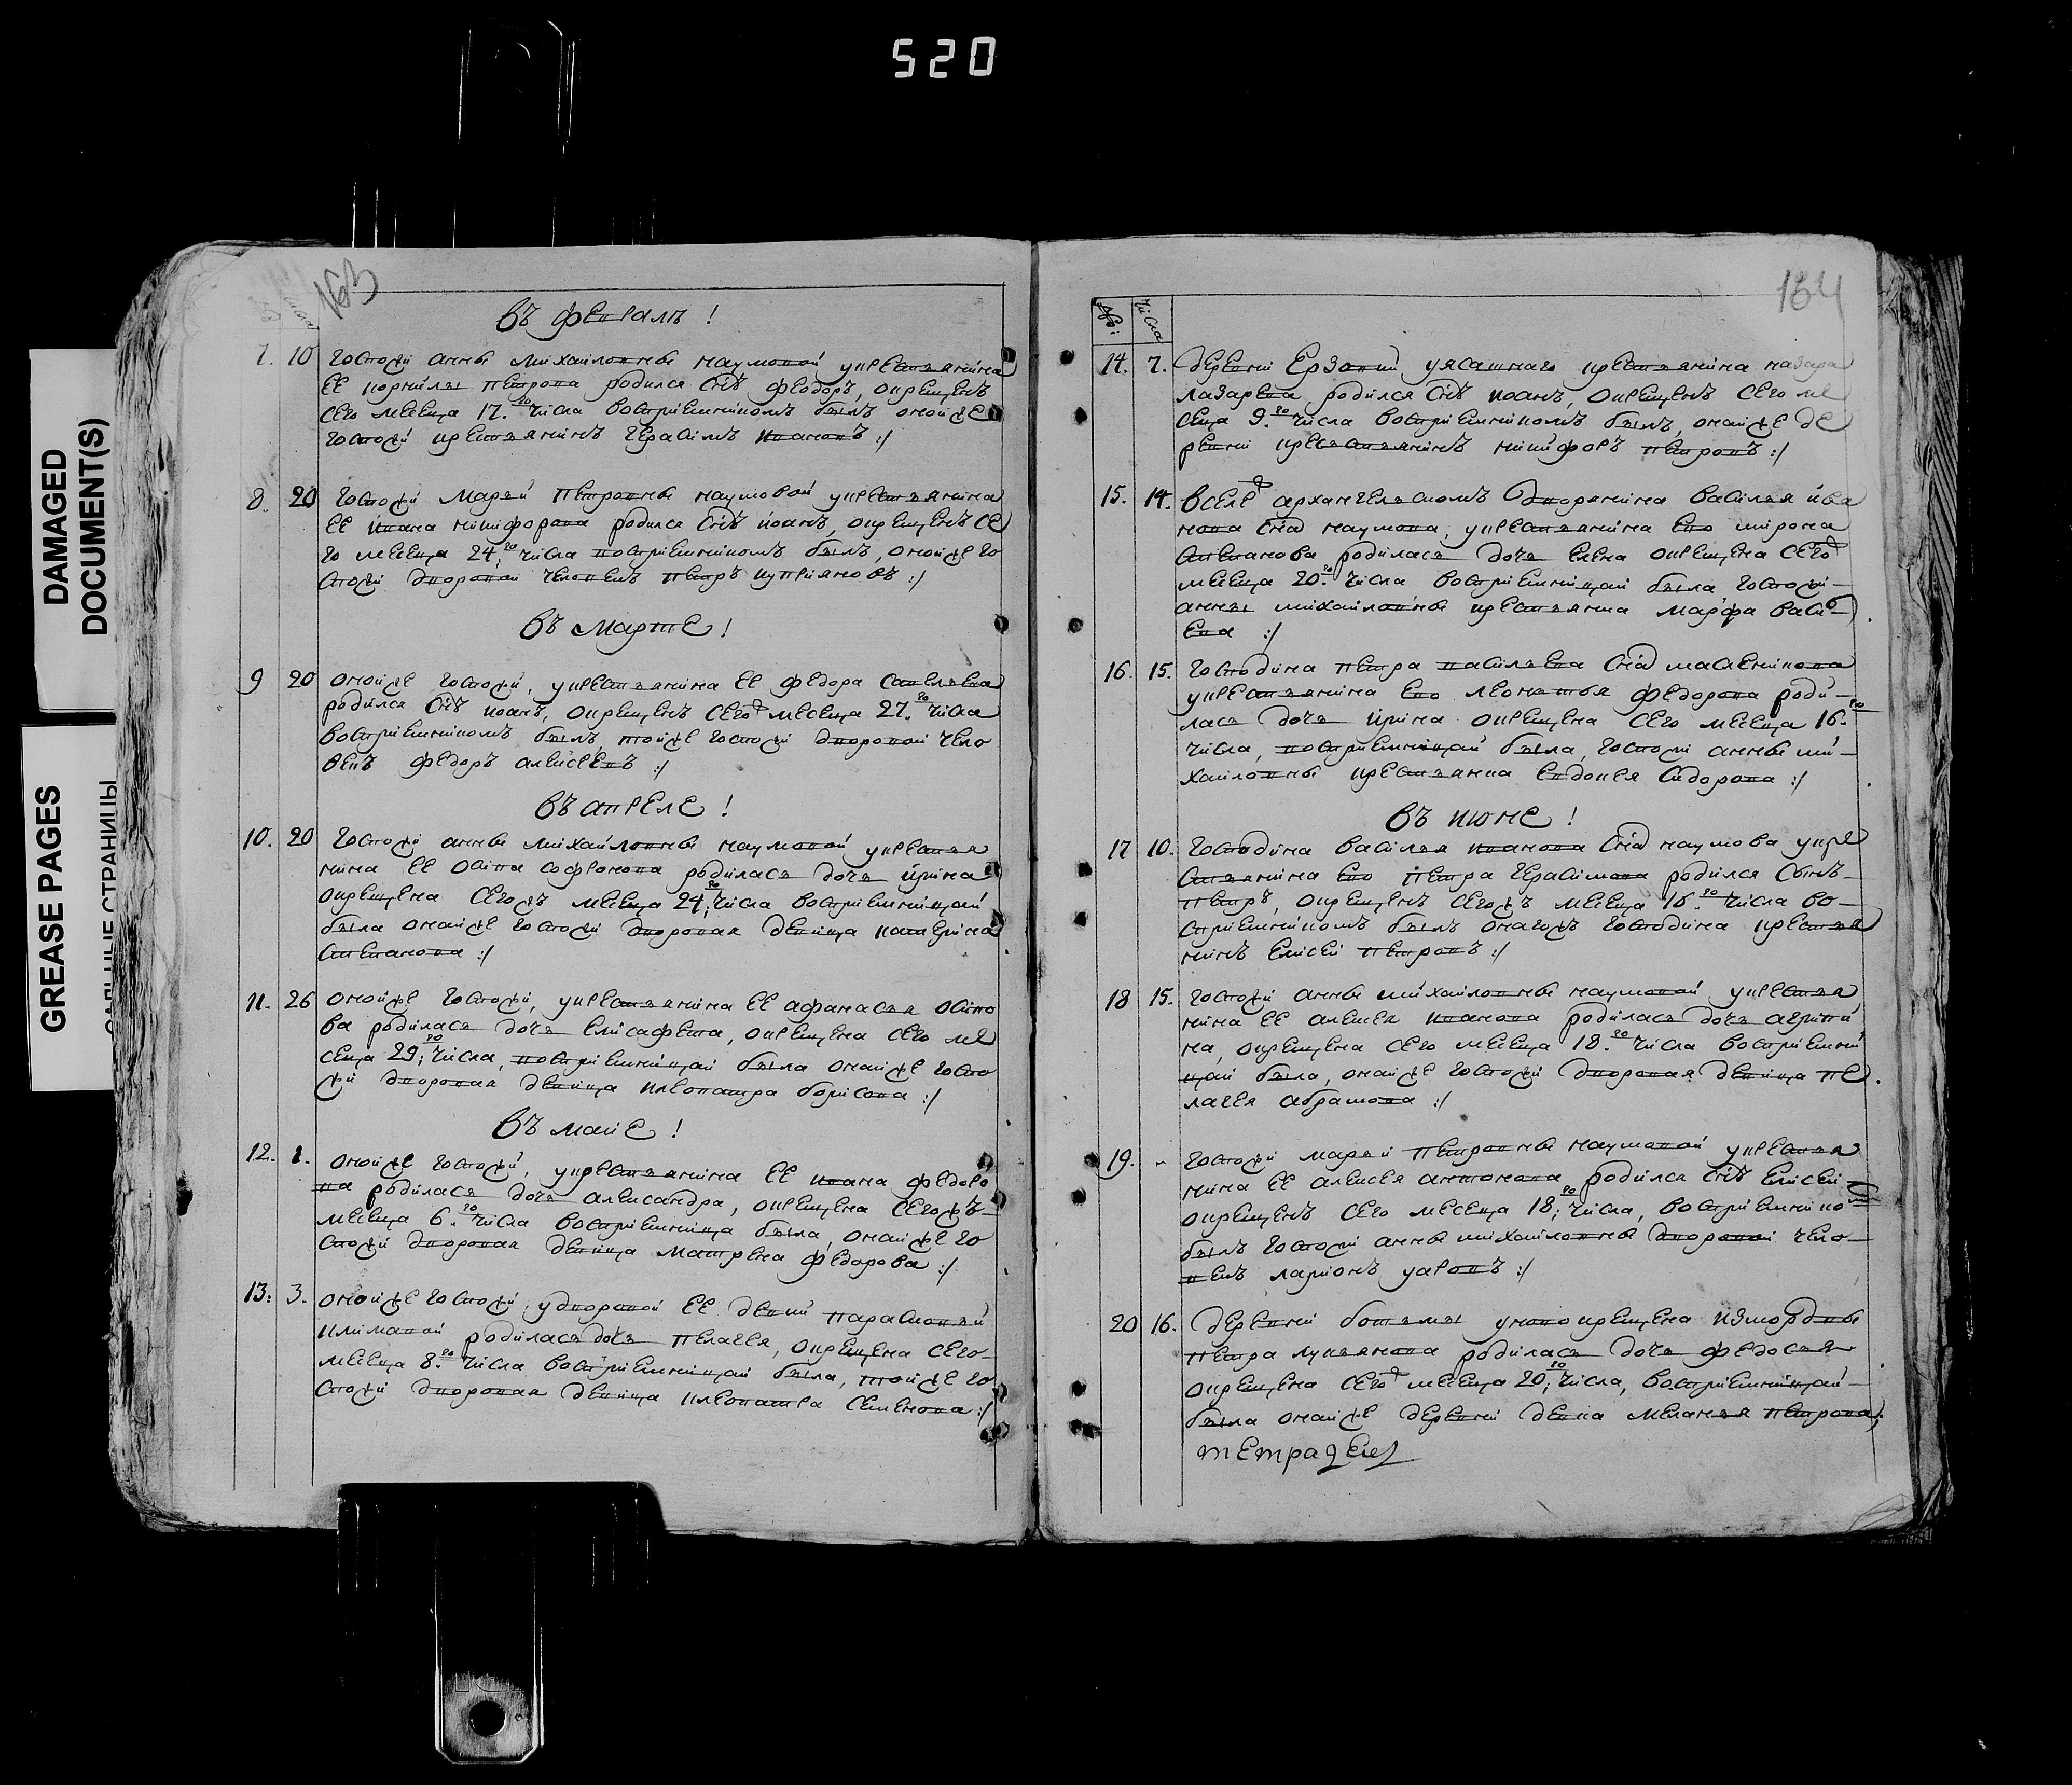 520
DAMAGED
DOCUMENT(S)
GREASE PAGES
163
числа
въ февралѣ !
7. 10 госпожи анны михаиловны наумовой укрестьянина
ее корнилы петрова родился снъ феодоръ, окрещенъ
сего месеца 17.го числа восприемникомъ былъ оной же
госпожи крестьянинъ герасимъ ивановъ :/
8. 20 госпожи марьи петровны наумовой укрестьянина
ее ивана никифорова родился снъ иоанъ, окрещенъ се
го месеца 24.го числа восприемникомъ былъ, оной же го
спожи дворовой человекъ петръ куприяновъ :/
въ марте !
9 20 оной же госпожи, укрестьянина ее федора савельева
родился снъ иоанъ, окрещенъ сегож месеца 27.го числа
восприемникомъ былъ той же госпожи дворовой чело
векъ федоръ алексеевъ :/
въ апреле !
10. 20 госпожи анны михаиловны наумовой укрестья
нина ее осипа софронова родилась дочь ирина
окрещена сегожъ месеца 24.го числа восприемницаи
была онаи же госпожи дворовая девица катерина
степанова :/
11. 26 оной же госпожи, укрестьянина ее афанасья осипо
ва родилась дочь елисафета, окрещена сего ме
сеца 29.го числа, восприемницаи была онаи же госпо
жи дворовая девица клеопатра борисова :/
въ маие !
12. 1. оной же госпожи, укрестьянина ее ивана федоро
ва родилась дочь александра, окрещена сегожъ
месеца 6.го числа восприемница была, онаи же го
спожи дворовая девица матрена федорова :/
13. 3. оной же госпожи, удворовой ее девки парасковьи
климовой родилась дочь пелагея, окрещена сего
месеца 8.го числа восприемницаи была, той же го
спожи дворовая девица клеопатра семенова :/
164
№: числа
14. 7. деревни ерзовки уясашнаго крестьянина назара
лазарева, родился снъ иоанъ, окрещенъ сего ме
сеца 9.го числа восприемникомъ былъ, онаи же де
ревни крестьянинъ никифоръ петровъ :/
15. 14. вселе архангельскомъ дворянина василья ива
нова сна наумова, укрестьянина ево мирона
степанова родилась дочь елена окрещена сегож
месеца 20.го числа восприемницаи была госпожи
анны михаиловны крестьянка марфа васи
ева :/
16. 15. господина петра васильева сна масленикова
укрестьянина ево леонтья федорова роди-
лась дочь ирина окрещена сего месеца 16.го
числа, восприемницаи была, госпожи анны ми-
хаиловны крестьянка евдокея сидорова :/
въ июне !
17 10. господина василья иванова сна наумова укре
стьянина ево петра герасимова родился сынъ
петръ, окрещенъ сегожъ месеца 16.го числа во-
сприемникомъ былъ онагожъ господина крестья
нинъ елисеи петровъ :/
18 15. госпожи анны михаиловны наумовой укрестья
нина ее алексея иванова родилась дочь агрипи
на, окрещена сего месеца 18.го числа восприемни
цаи была, онаи же госпожи дворовая девица пе
лагея абрамова :/
19. - госпожи марьи петровны наумовой укрестья
нина ее алексея антонова родился снъ елисеи
окрещенъ сего месеца 18.го числа, восприемником
былъ госпожи анны михаиловны дворовой чело-
векъ ларионъ уаровъ :/
20 16. деревни ботьмы уновокрещена
петра лукьянова родилась дочь федосья
окрещена сегож месеца 20.го числа, восприемницаи
была онаи же деревни девка меланья петрова,